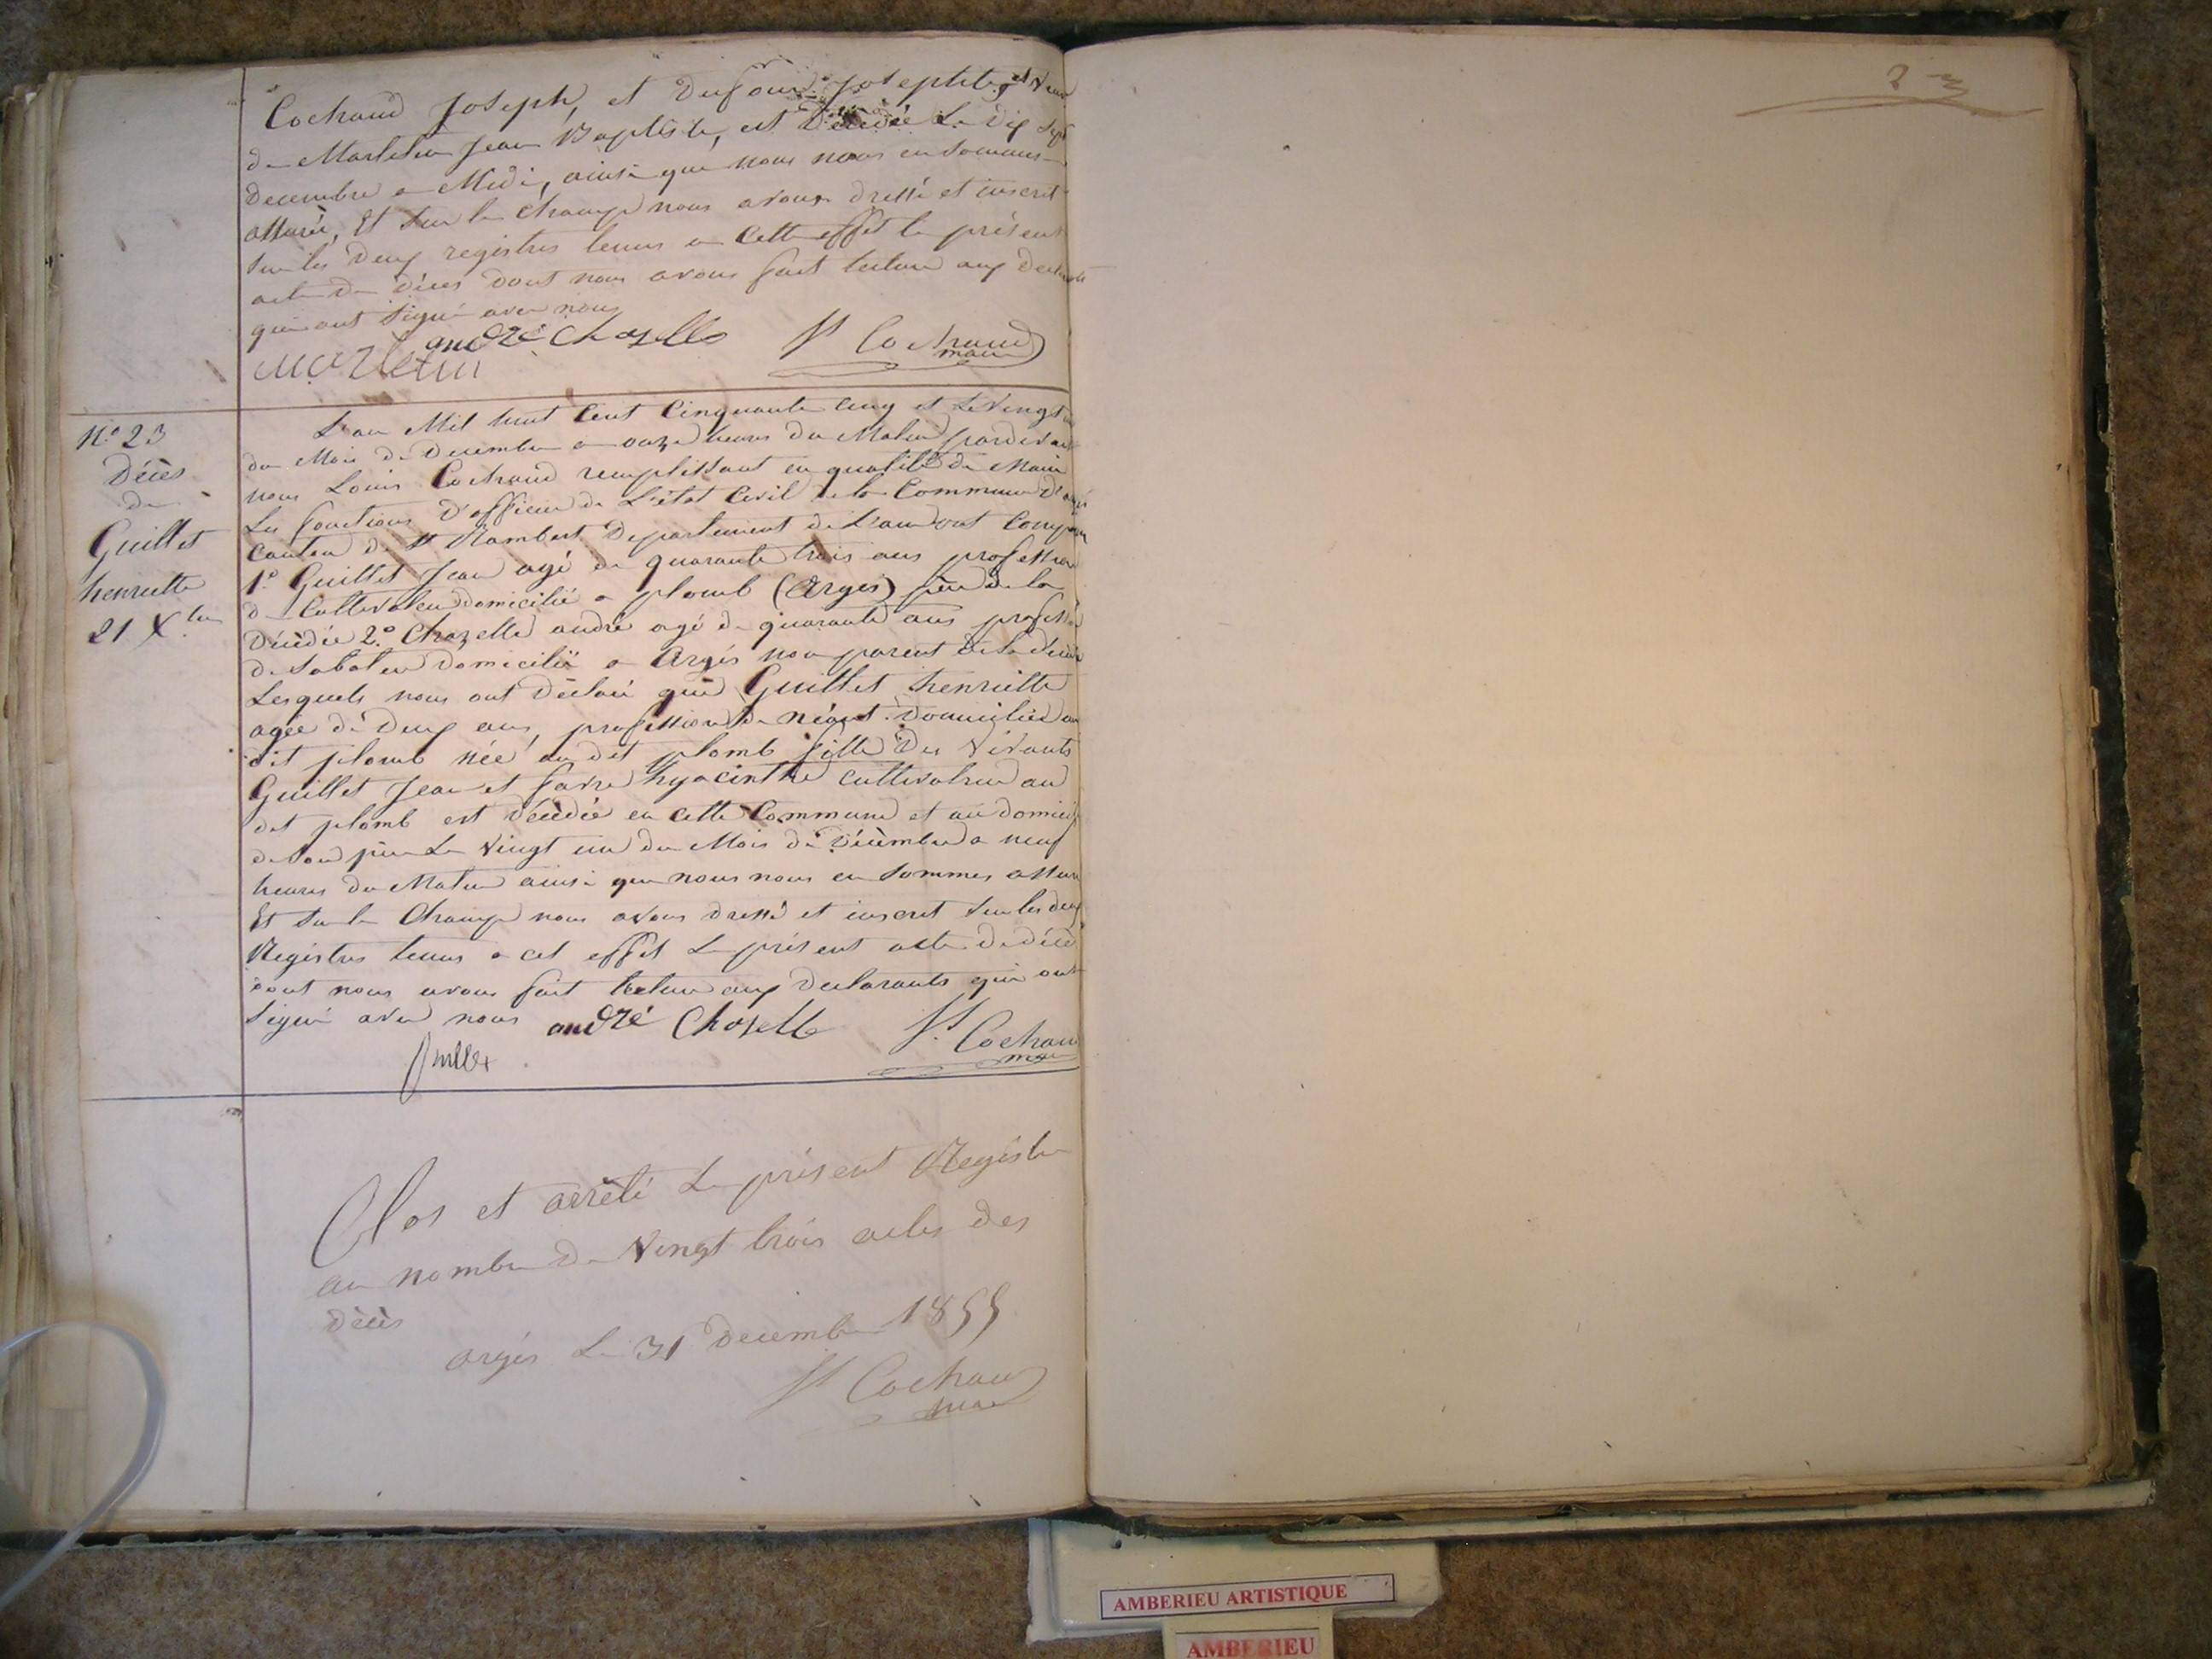 Cochaud Joseph, et Dufour Josephte, et veuve
de Marletin Jean Baptiste, est Décédée Le Dix Sept
Decembre a Midi, ainsi que nous nous en sommes
assuré, Et Sur le champ nous avons dressé et inscrit
Sur les Deux registres tenus a Cette effet le présent
acte De dèces dont nous avons fait lecture aux Declarants
qui ont signé avec nous
andré Chazelle Cochaud
marletin maire
N.º 23
Dèces
de
Guillet
henriette
21 X.bre
L'an Mil huit Cent Cinquante cinq et Le Vingt un
du Mois De Decembre a onze heures du Matin pardevant
nous Louis Cochaud remplissant en qualité de Maire
Les fonctions D'officier De L'état Civil de la Commune D'argis
Canton de St Rambert Departement de L'ain ont Comparu
1.º Guillet Jean agé de quarante trois ans profession
de Cultivateur domicilié a plomb (Argis) père de la
Décèdée 2.º Chazelle andré agé de quarante ans profession
de Sabotier Domicilié a Argis non parent de la
Lesquels nous ont Déclaré que Guillet henriette
agée de Deux ans, profession de néant Domiciliée au
dit plomb née au dit plomb fille Des Vivants
Guillet Jean et favre hyacinthe cultivateur au
dit plomb est Décèdée en cette Commune et au domicile
de son père Le Vingt un du Mois de Décèmbre a neuf
heures du Matin ainsi que nous nous en Sommes assuré
Et Sur le Champ nous avons dressé et inscrit Sur les deux
Registres tenus a cet effet Le présent acte De dècè
dont nous avons fait lecture aux Declarants qui ont
Signé avec nous andré Chazelle Cochaud
Guillet maire
Clos et arrèté Le présent Registre
au nombre De Vingt trois actes des
Dècès
argis Le 31 Decembre 1855
Cochaud
maire
AMBERIEU ARTISTIQUE
AMBERIEU